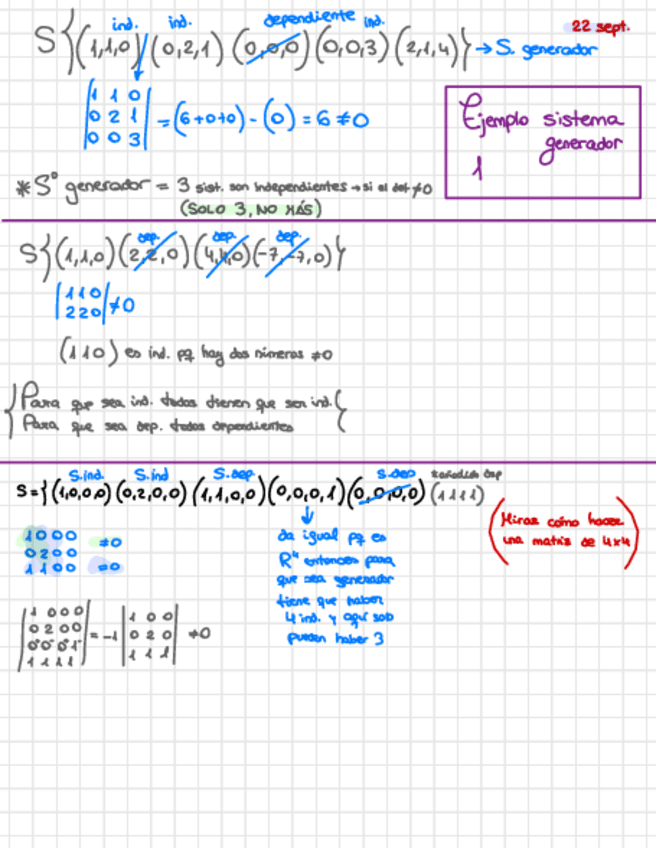 22 sept.
ind. ind. dependiente ind.
S{(1,1,0)(0,2,1)(0,0,0)(0,0,3)(2,1,4)} → S. generador
|1 1 0|
|0 2 1| = (6+0+0) - (0) = 6 ≠ 0
|0 0 3|
Ejemplo sistema
generador
1
* Sº generador = 3 sist. son independientes → si el det ≠0
(SOLO 3, NO MÁS)
dep. dep. dep.
S{(1,1,0)(2,2,0)(4,4,0)(-7,-7,0)}
|1 1 0|
|2 2 0| ≠0
(1 1 0) es ind. pq hay dos números ≠0
Para que sea ind. todos tienen que ser ind.
Para que sea dep. todos dependientes
S.ind. S.ind S.dep. S.dep
S={(1,0,0,0)(0,2,0,0)(1,1,0,0)(0,0,0,1)(0,0,0,0)(1 1 1 1)
1 0 0 0
0 2 0 0 ≠0
1 1 0 0 =0
da igual pq es
R⁴ entonces para
que sea generador
tiene que haber
4 ind. y aquí solo
pueden haber 3
Mirar cómo hacer
una matriz de 4x4
|1 0 0 0|
|0 2 0 0| = -1 |1 0 0|
|0 0 0 1| |0 2 0| ≠0
|1 1 1 1| |1 1 1|